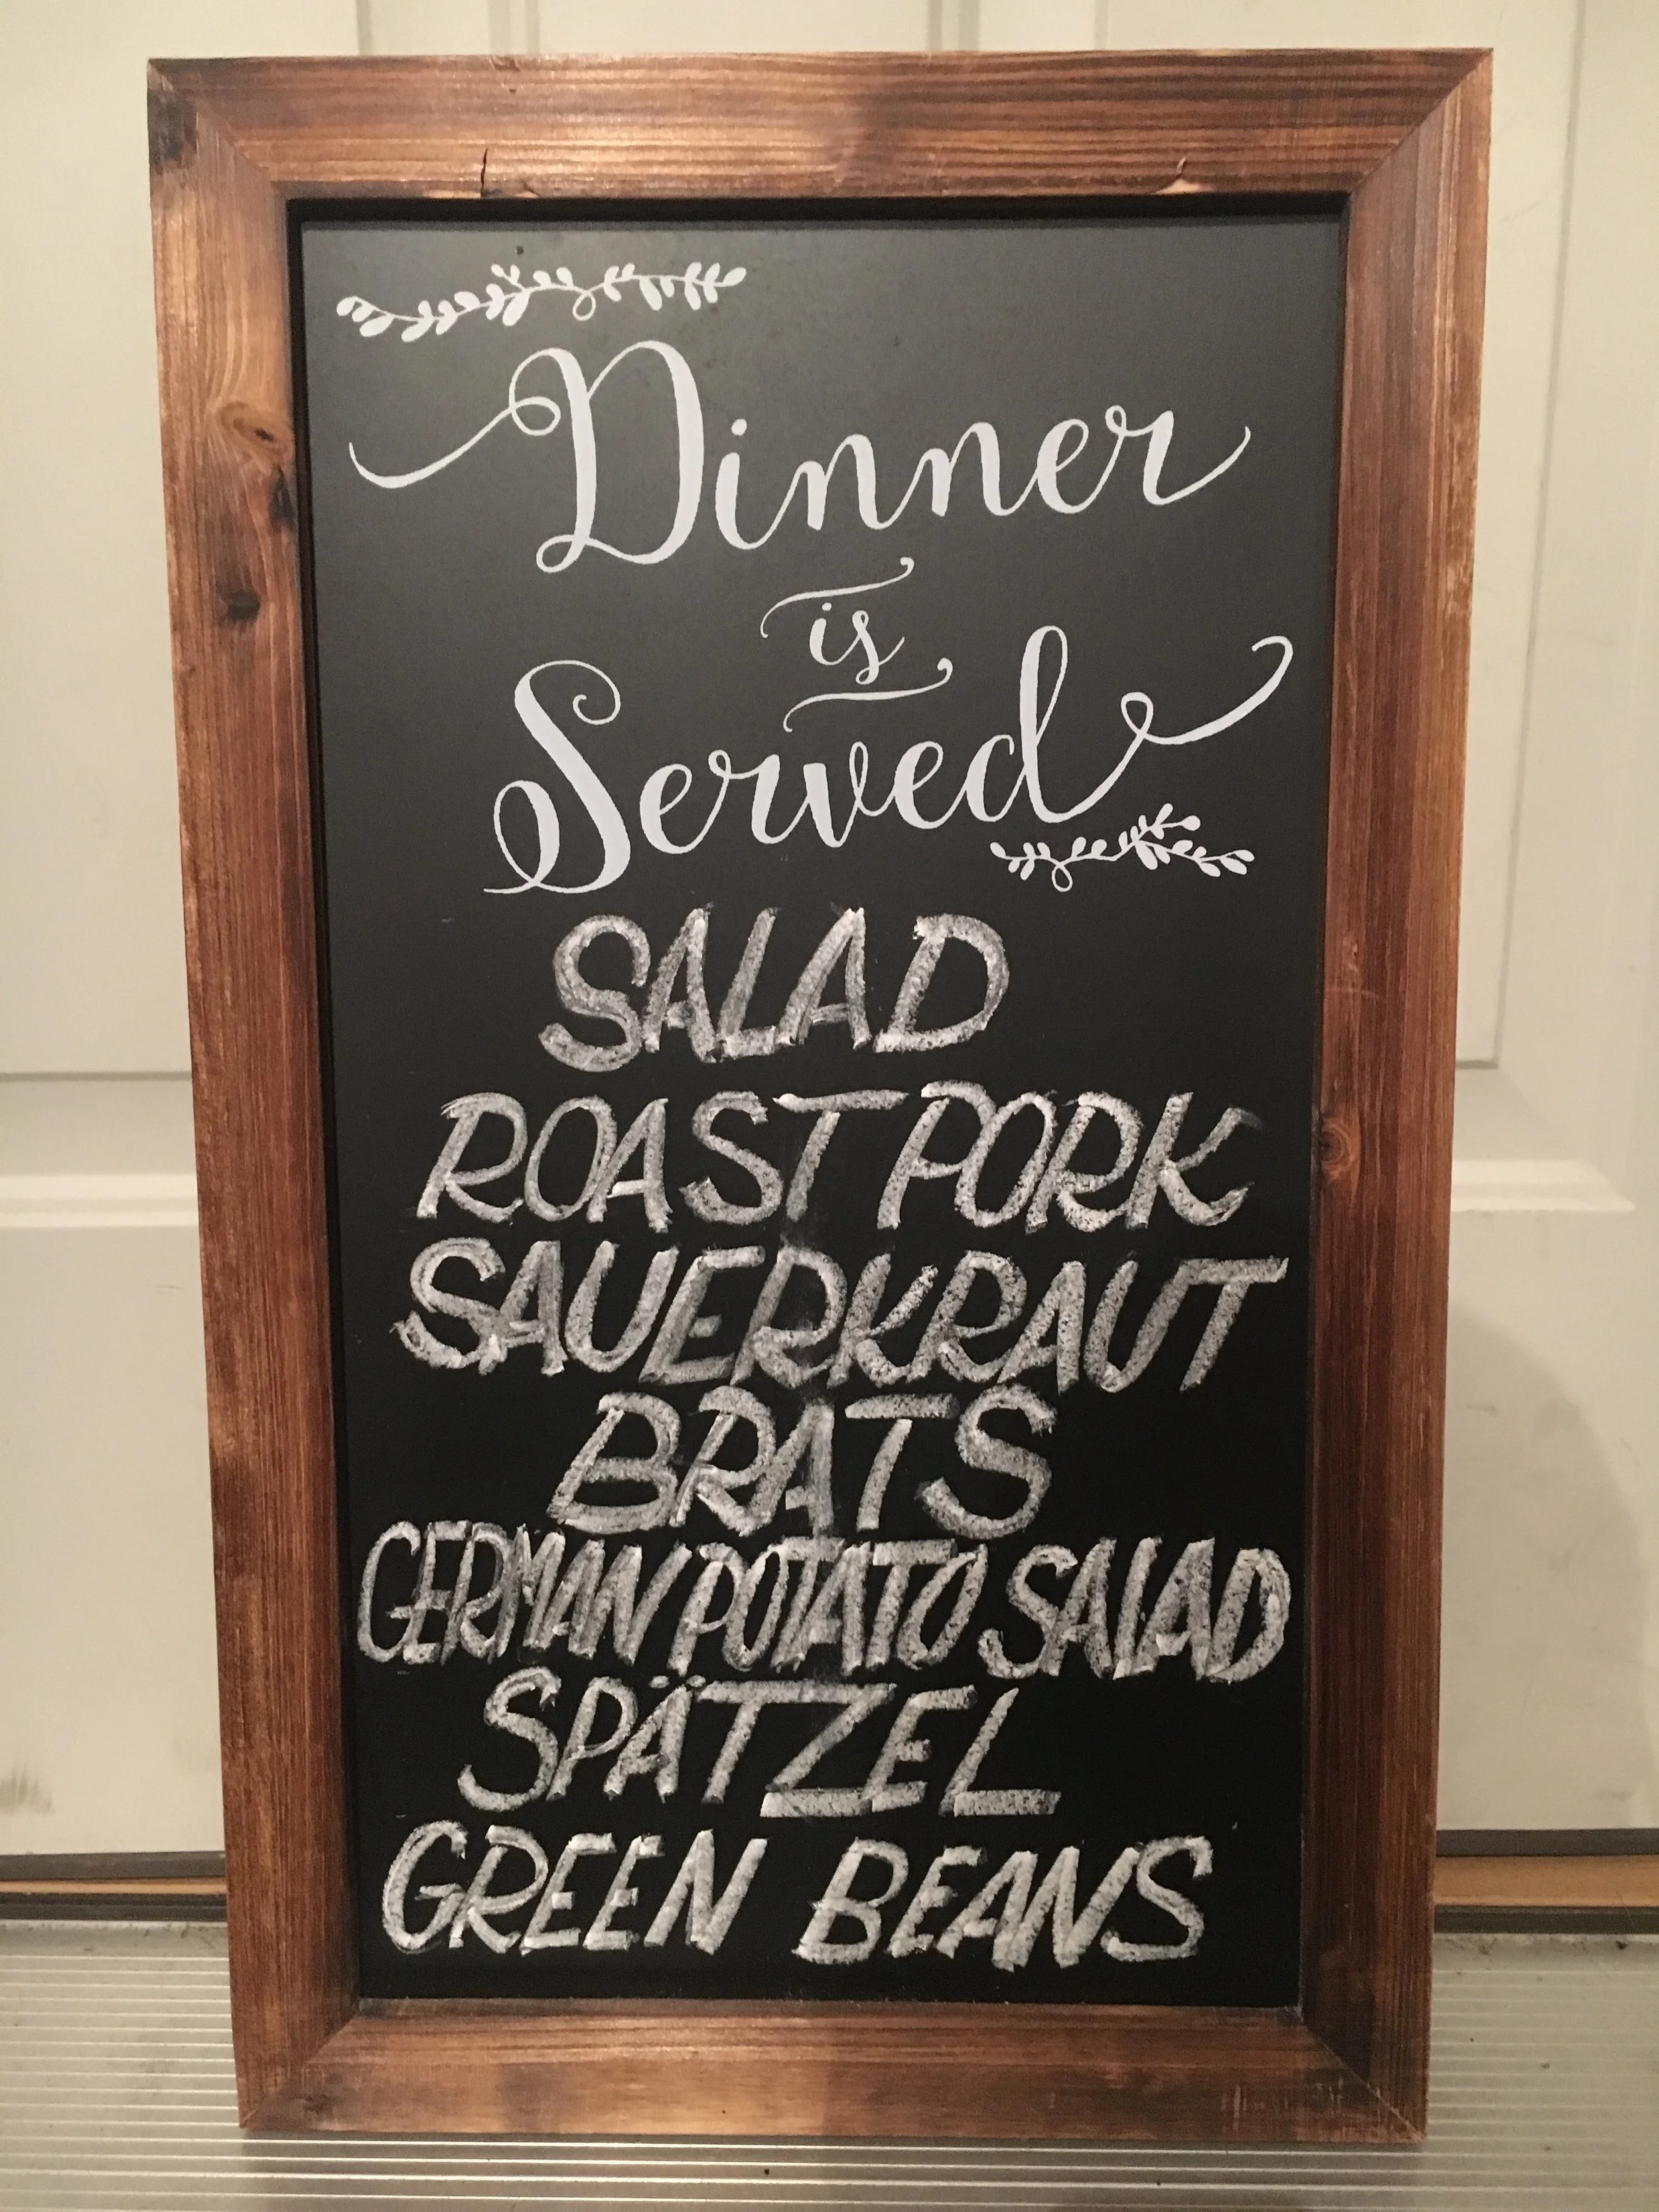 Dinner
is
Served
SALAD
ROAST PORK
SAUERKRAUT
BRATS
GERMAN POTATO SALAD
SPÄTZEL
GREEN BEANS